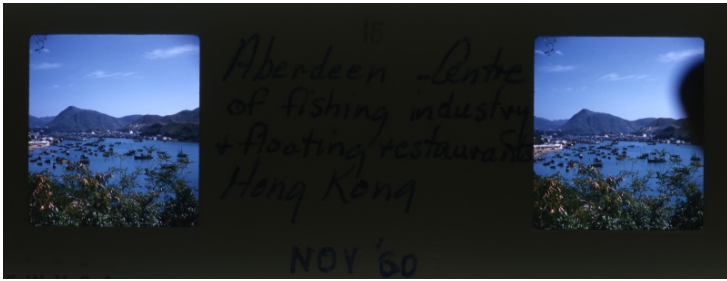 16
Aberdeen - Centre
of fishing industry
+ floating restaurants
Hong Kong
NOV '60